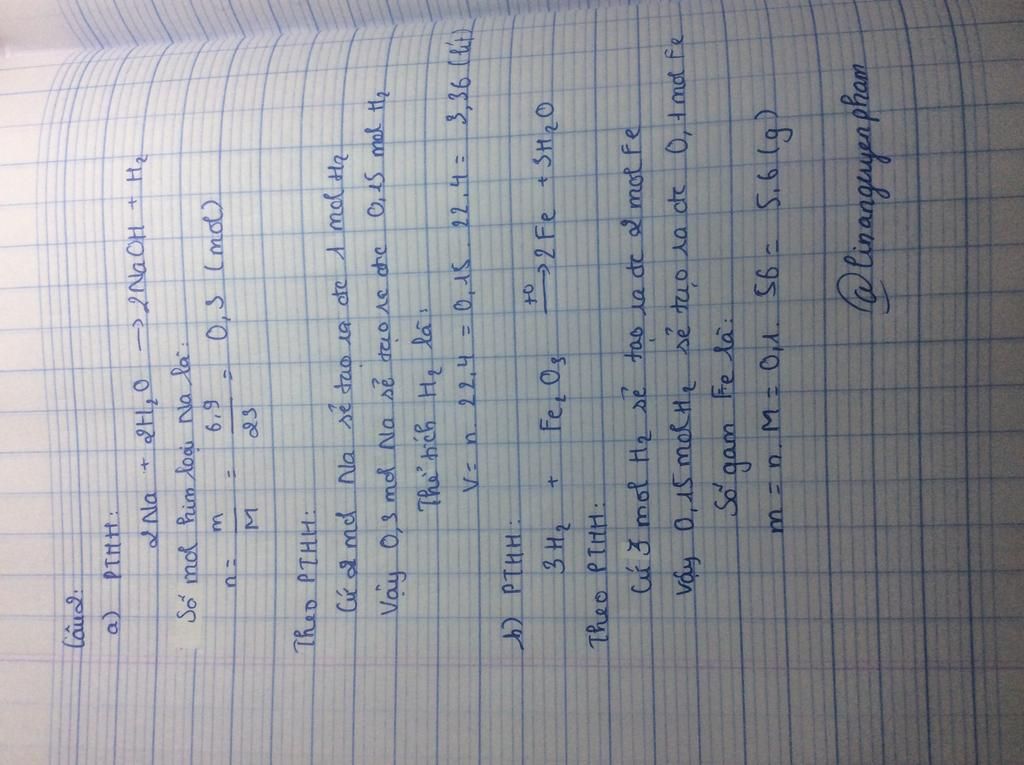 Câu 2:
a) PTHH:
2Na + 2H₂O → 2NaOH + H₂
Số mol kim loại Na là:
n = m/M = 6,9/23 = 0,3 (mol)
Theo PTHH:
Cứ 2 mol Na sẽ tạo ra đc 1 mol H₂
Vậy 0,3 mol Na sẽ tạo ra đc 0,15 mol H₂
Thể tích H₂ là:
V = n. 22,4 = 0,15. 22,4 = 3,36 (lít)
b) PTHH:
3H₂ + Fe₂O₃ —t⁰→ 2Fe + 3H₂O
Theo PTHH:
Cứ 3 mol H₂ sẽ tạo ra đc 2 mol Fe
Vậy 0,15 mol H₂ sẽ tạo ra đc 0,1 mol Fe
Số gam Fe là:
m = n. M = 0,1. 56 = 5,6 (g)
@linanguyenpham